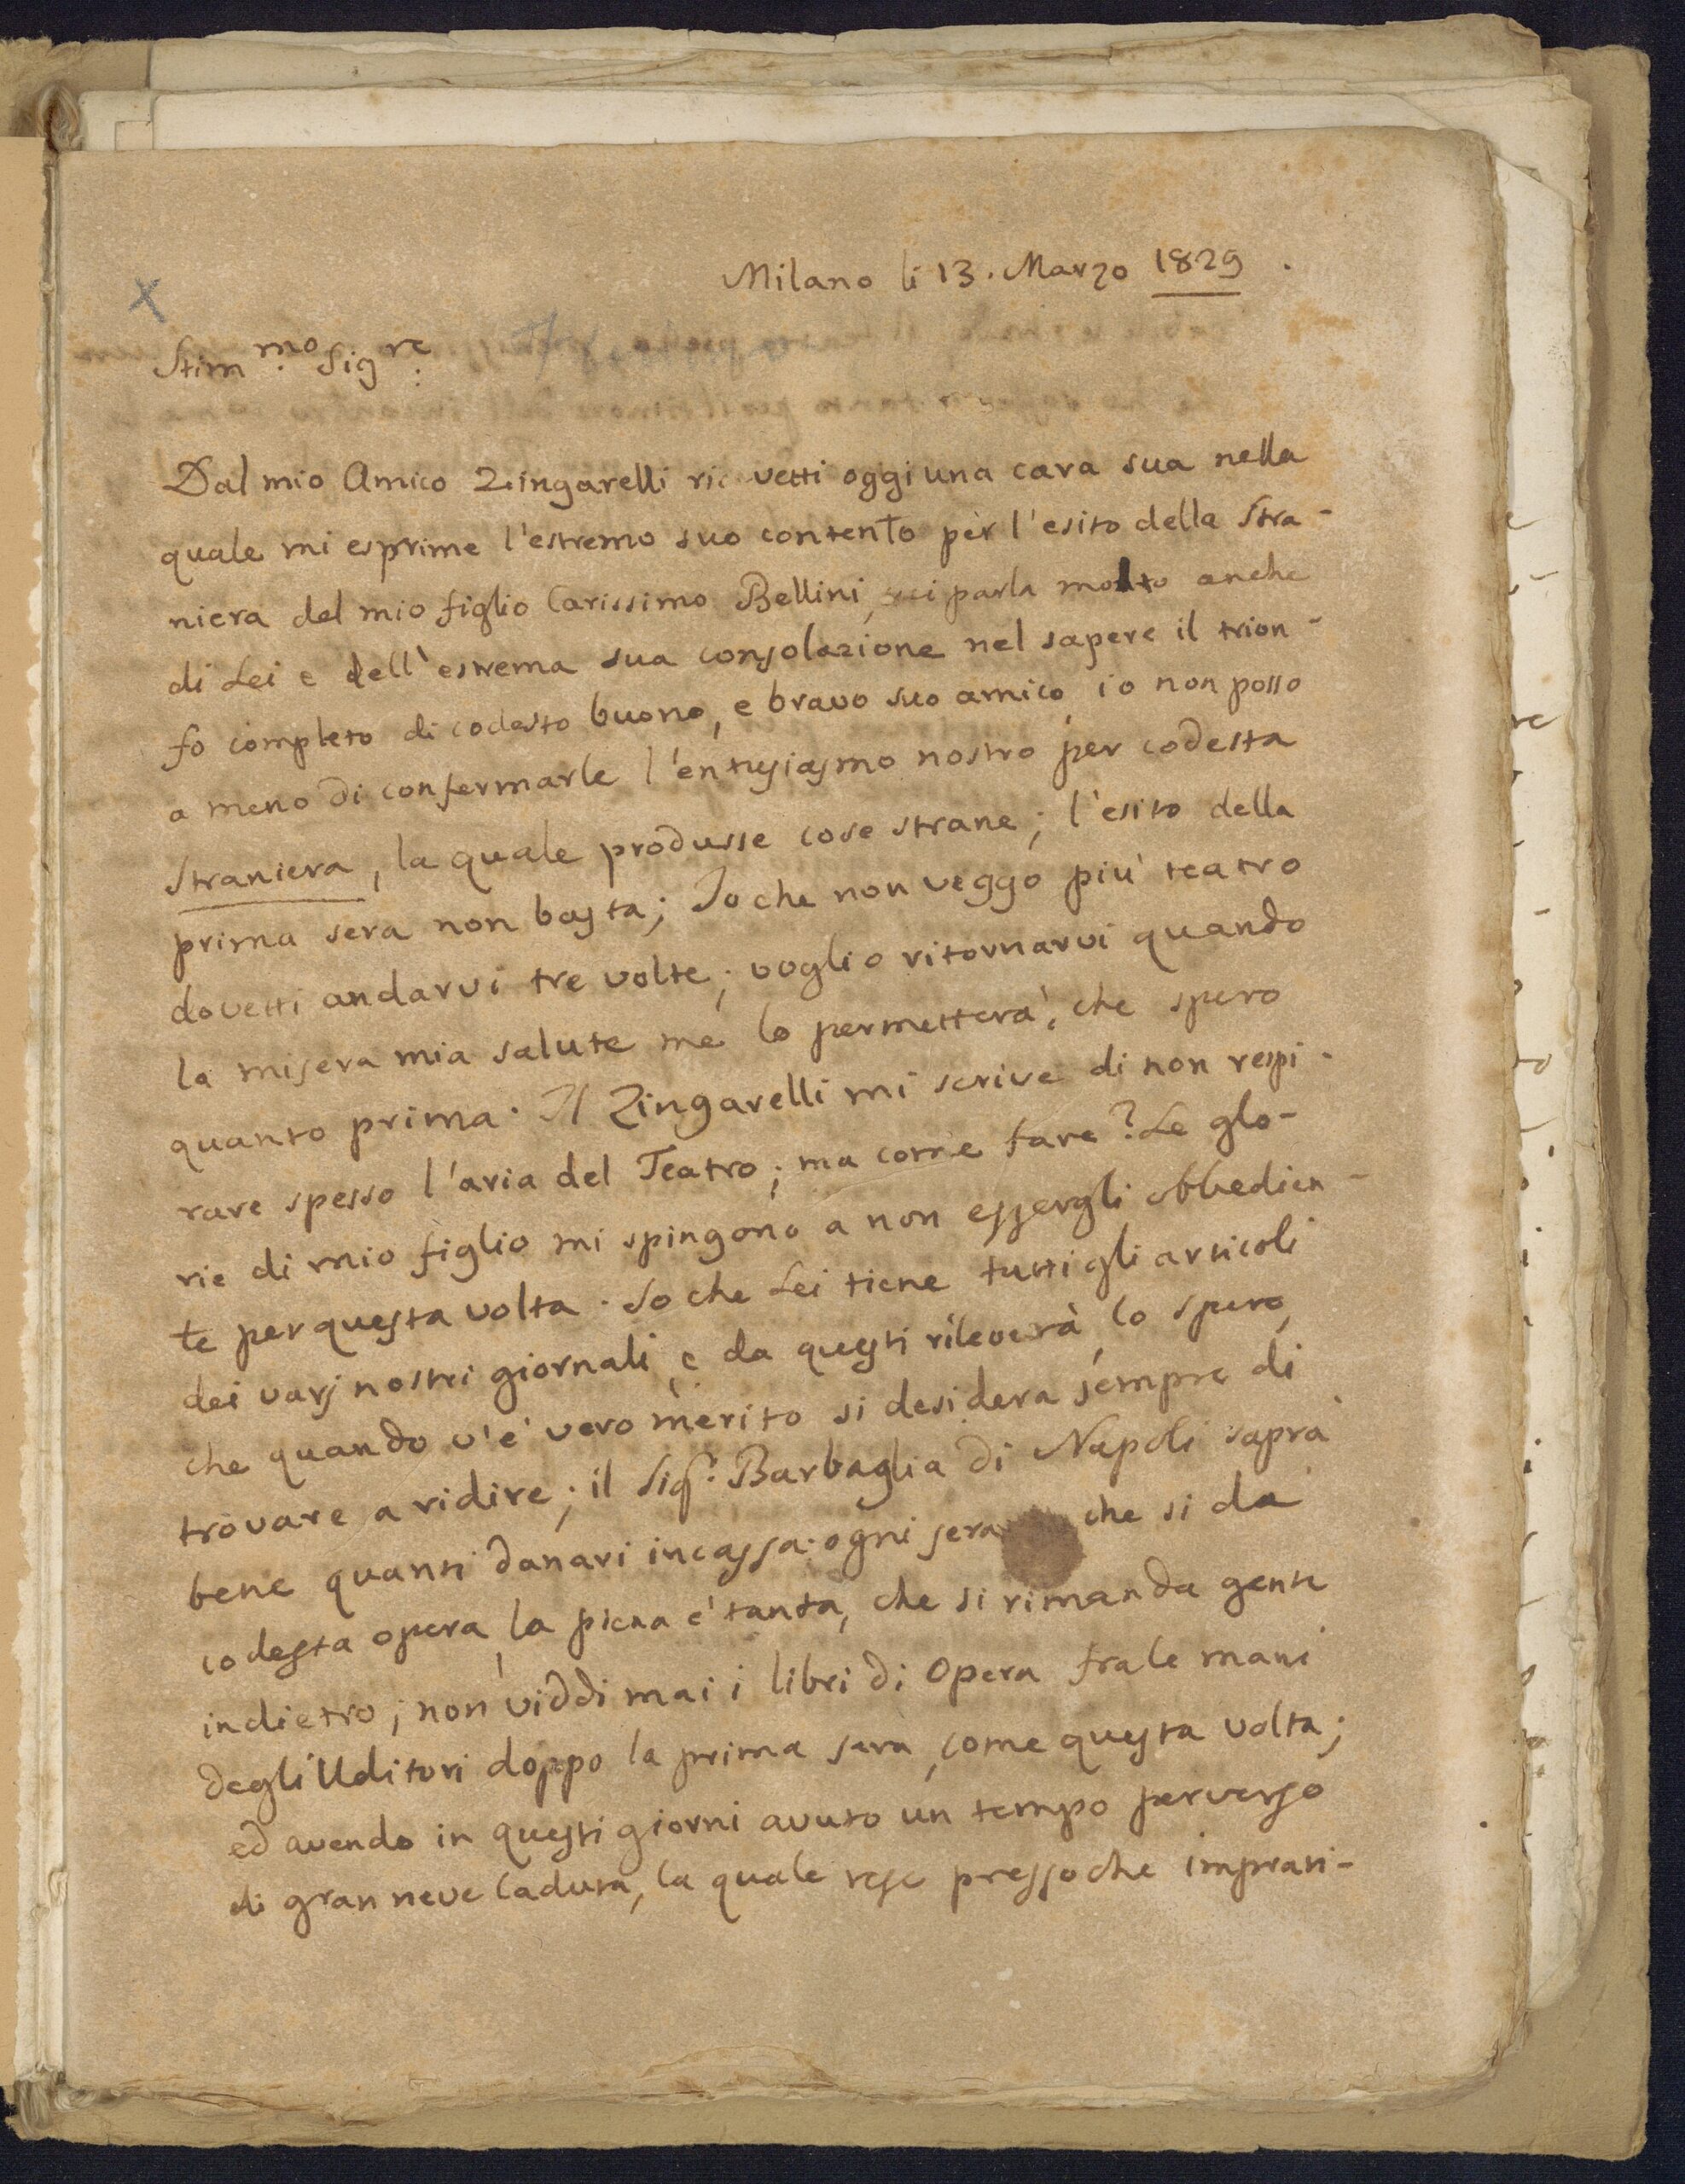 Milano li 13. Marzo 1829.
X
Stim.mo Sig.re
Dal mio Amico Zingarelli ricevetti oggi una cara sua nella
quale mi esprime l'estremo suo contento per l'esito della Stra-
niera del mio figlio Carissimo Bellini, mi parla molto anche
di Lei e dell'estrema sua consolazione nel sapere il trion-
fo completo di codesto buono, e bravo suo amico, io non posso
a meno di confermarle l'entusiasmo nostro per codesta
Straniera, la quale produsse cose strane; l'esito della
prima sera non basta; Io che non veggo più teatro
dovetti andarvi tre volte; voglio ritornarvi quando
la misera mia salute me lo permetterà, che spero
quanto prima. Il Zingarelli mi scrive di non respi-
rare spesso l'aria del Teatro; ma come fare? Le glo-
rie di mio figlio mi spingono a non essergli obbedien-
te per questa volta. So che Lei tiene tutti gli articoli
dei varj nostri giornali, e da questi rileverà, lo spero,
che quando v'è vero merito si desidera sempre di
trovare a ridire; il Sig.r Barbaglia di Napoli saprà
bene quanti danari incassa. ogni sera che si dà
codesta opera, la piena è tanta, che si rimanda gente
indietro; non viddi mai i libri di Opera fra le mani
degli Uditori doppo la prima sera, come questa volta;
ed avendo in questi giorni avuto un tempo perverso
di gran neve caduta, la quale rese pressoche imprati-